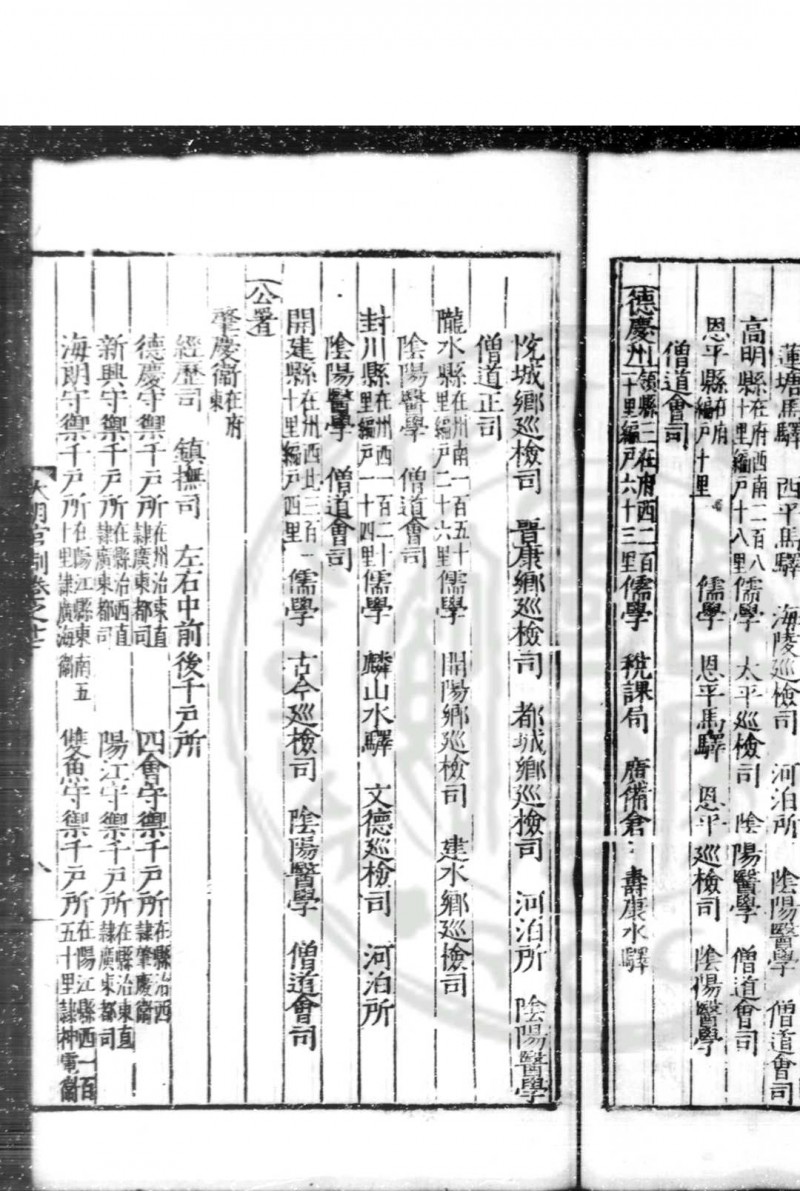 蓮塘馬驛　西平馬驛　海陵巡檢司　河泊所　陰陽醫學　僧道會司
高明縣在府西南二百八十里編戶十八里儒學　太平巡檢司　陰陽醫學　僧道會司
恩平縣在府編戶十里　儒學　恩平馬驛　恩平巡檢司　陰陽醫學
僧道會司
德慶州領縣三在府西二百一十里編戶六十三里儒學　稅課局　廣備倉　壽康水驛
悅城鄉巡檢司　晋康鄉巡檢司　都城鄉巡檢司　河泊所　陰陽醫學
僧道正司
瀧水縣在州南一百五十里編戶二十六里儒學　開陽鄉巡檢司　建水鄉巡檢司
陰陽醫學　僧道會司
封川縣在州西一百二十里編戶一十四里儒學　麟山水驛　文德巡檢司　河泊所
陰陽醫學　僧道會司
開建縣在州西北三百一十里編戶四里儒學　古令巡檢司　陰陽醫學　僧道會司
公署
肇慶衛在府東
經歷司　鎮撫司　左右中前後千戶所
德慶守禦千戶所在州治東直隸廣東都司　四會守禦千戶所在縣治西隸肇慶衛
新興守禦千戶所在縣治西直隸廣東都司　陽江守禦千戶所在縣治東直隸廣東都司
海朗守禦千戶所在陽江縣東南五十里隸廣海衛　雙魚守禦千戶所在陽江縣西一百五十里隸神電衛
大明官制卷之十三　八